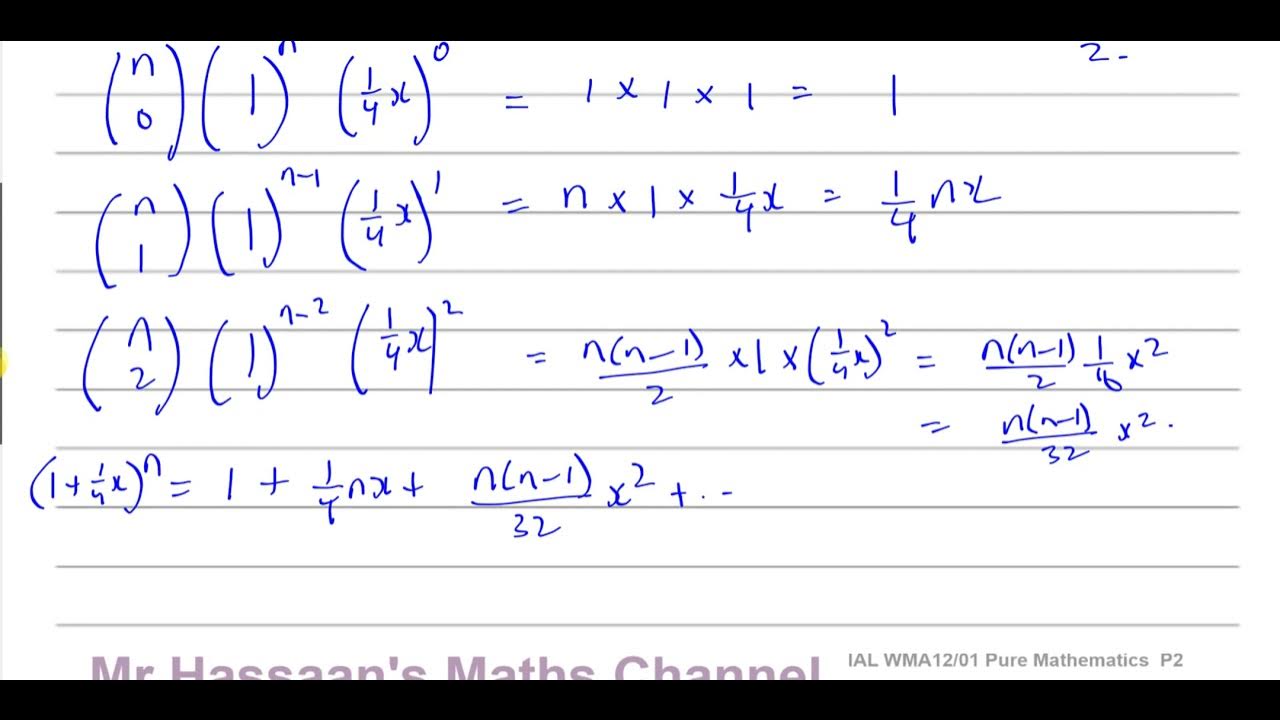 2.
(n 0)(1)^n (1/4 x)^0 = 1 × 1 × 1 = 1
(n 1)(1)^(n-1) (1/4 x)^1 = n × 1 × 1/4 x = 1/4 nx
(n 2)(1)^(n-2) (1/4 x)^2 = n(n-1)/2 × 1 × (1/4 x)^2 = n(n-1)/2 1/16 x^2
= n(n-1)/32 x^2.
(1 + 1/4 x)^n = 1 + 1/4 nx + n(n-1)/32 x^2 + ...
Mr Hassaan's Maths Channel
IAL WMA12/01 Pure Mathematics P2